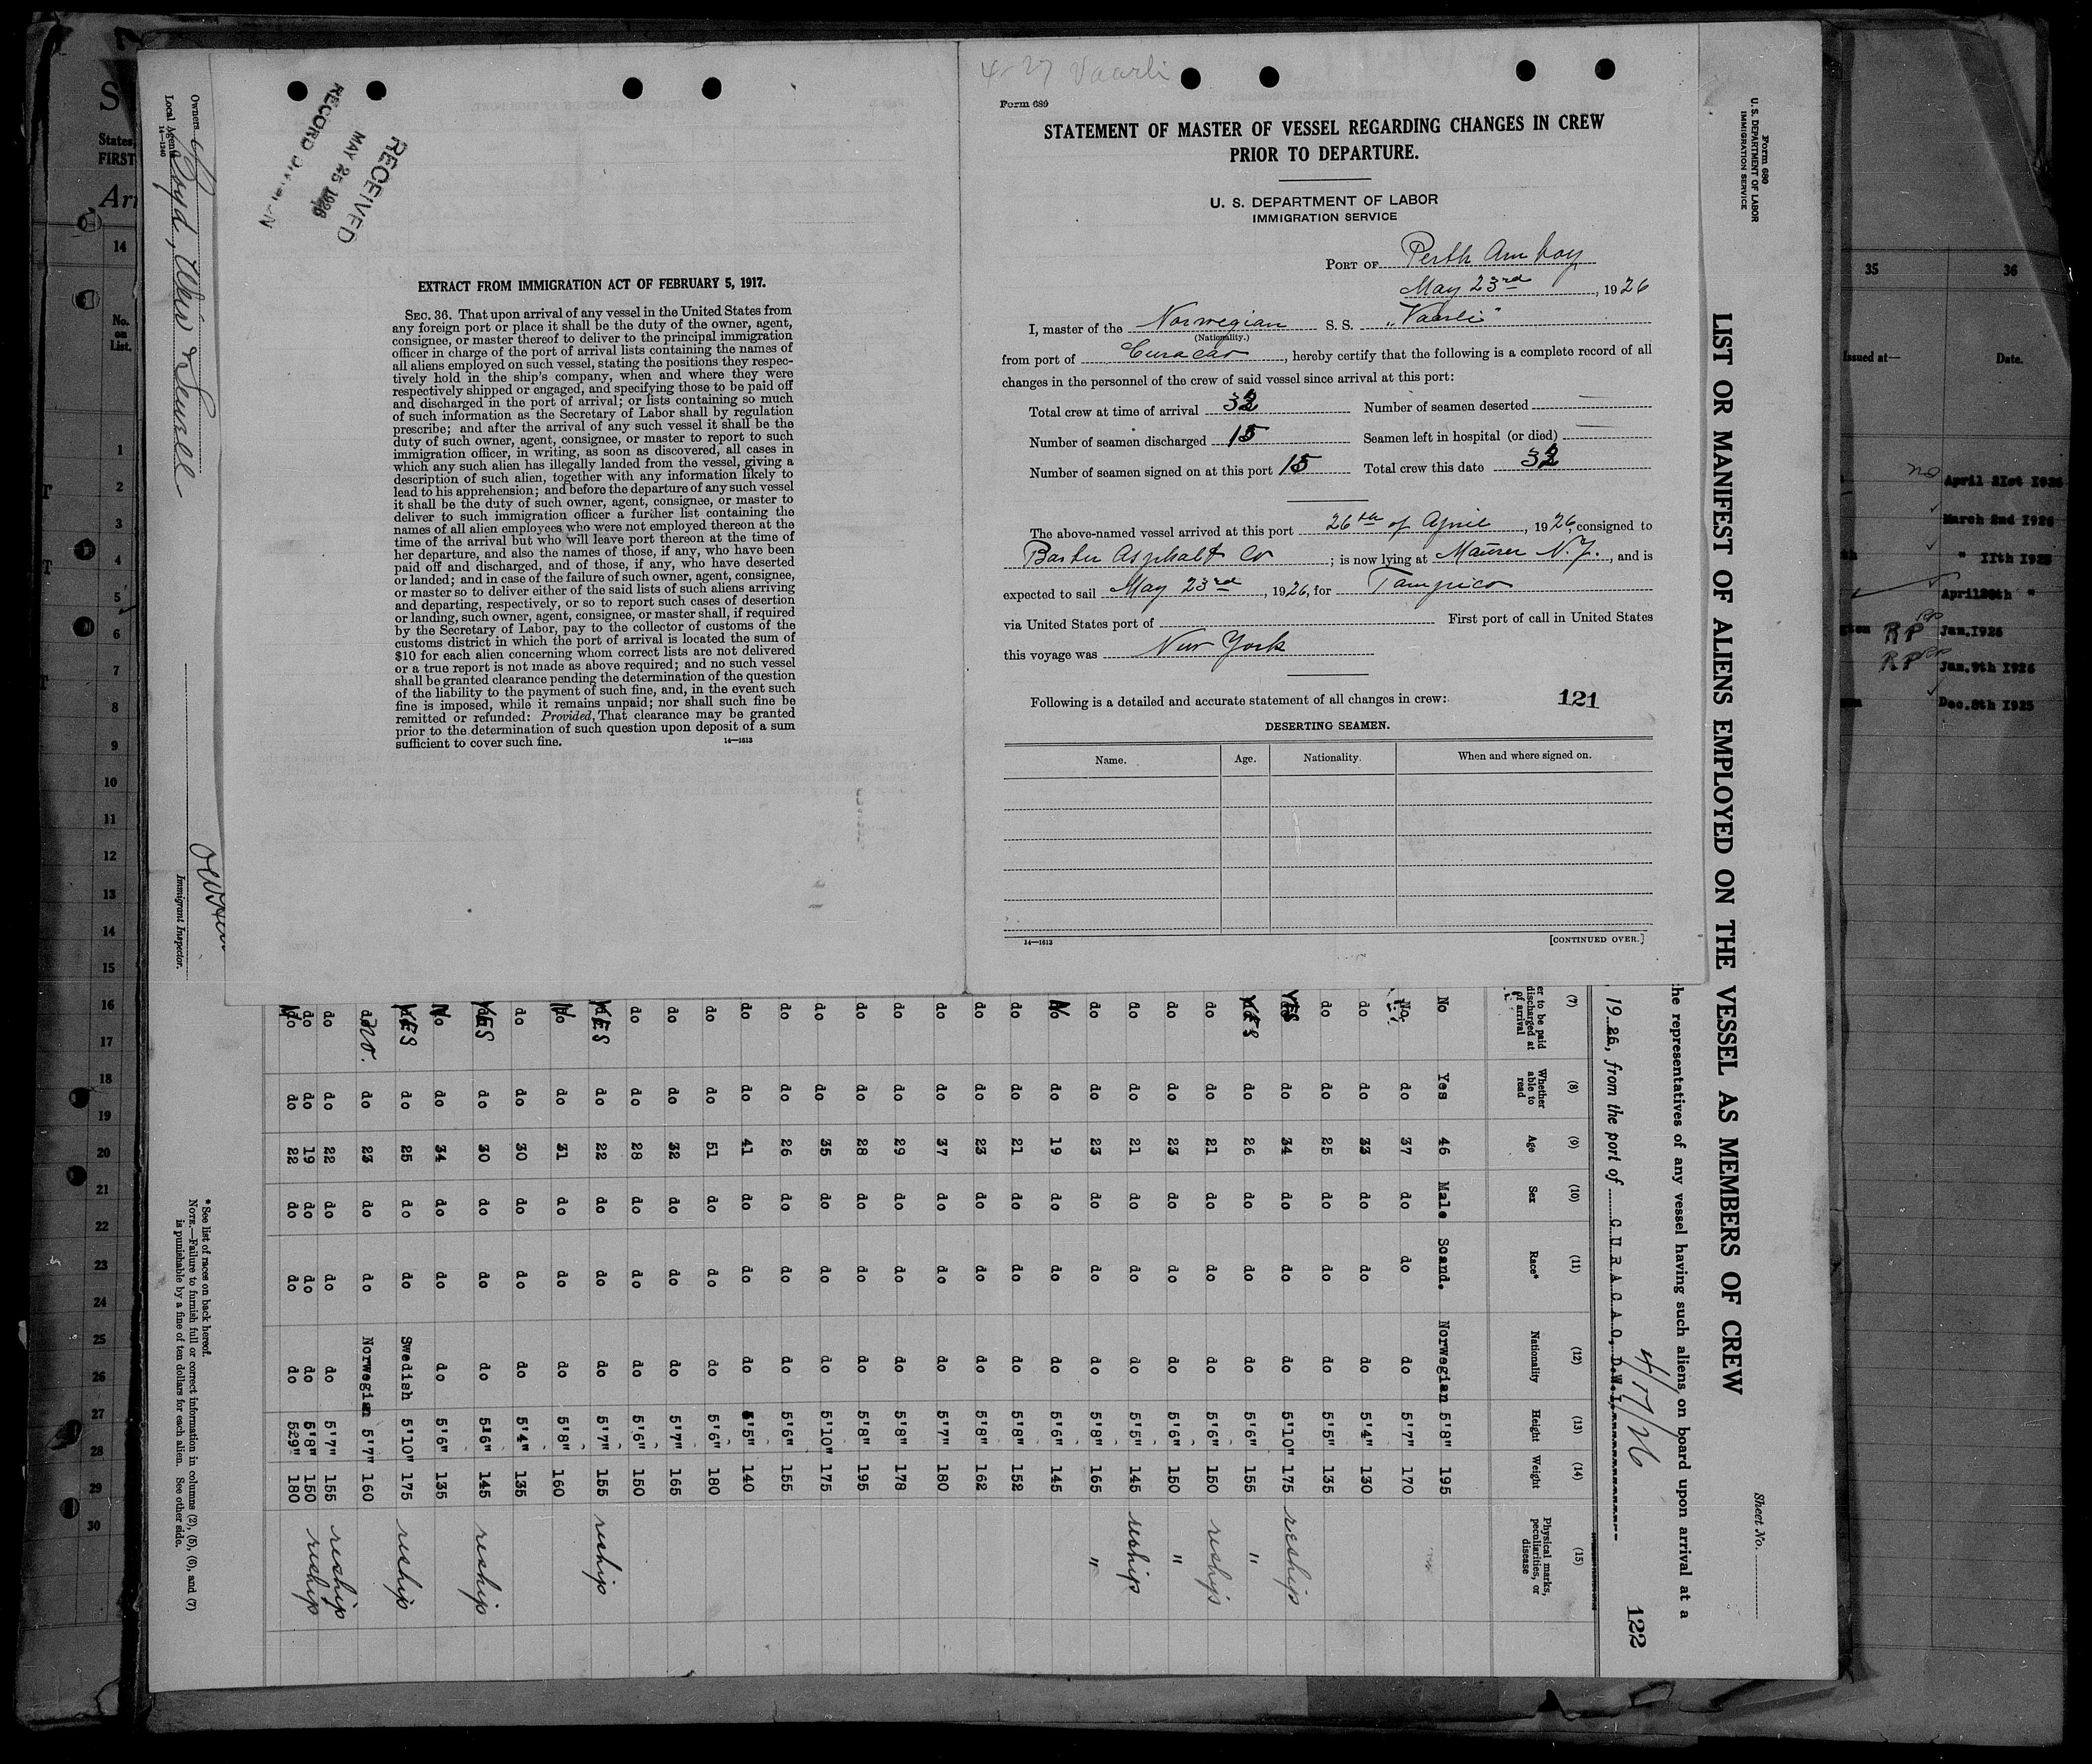 4-27 Vaarli
Form 689
STATEMENT OF MASTER OF VESSEL REGARDING CHANGES IN CREW
PRIOR TO DEPARTURE.
U. S. DEPARTMENT OF LABOR
IMMIGRATION SERVICE
PORT OF Perth Amboy
May 23rd, 1926
I, master of the Norwegian S. S. "Vaarli"
(Nationality.)
from port of Curacao, hereby certify that the following is a complete record of all
changes in the personnel of the crew of said vessel since arrival at this port:
Total crew at time of arrival Number of seamen deserted
Number of seamen discharged 15 Seamen left in hospital (or died)
Number of seamen signed on at this port 15 Total crew this date
The above-named vessel arrived at this port 26th of April, 1926, consigned to
Barber Asphalt Co; is now lying at Maurer N.J., and is
expected to sail May 23rd, 1926, for Tampico
via United States port of First port of call in United States
this voyage was New York
Following is a detailed and accurate statement of all changes in crew: 121
DESERTING SEAMEN.
Name. Age. Nationality. When and where signed on.
14—1613 [CONTINUED OVER.]
RECEIVED
MAY 25 1926
RECORD DIVISION
EXTRACT FROM IMMIGRATION ACT OF FEBRUARY 5, 1917.
SEC. 36. That upon arrival of any vessel in the United States from
any foreign port or place it shall be the duty of the owner, agent,
consignee, or master thereof to deliver to the principal immigration
officer in charge of the port of arrival lists containing the names of
all aliens employed on such vessel, stating the positions they respec-
tively hold in the ship's company, when and where they were
respectively shipped or engaged, and specifying those to be paid off
and discharged in the port of arrival; or lists containing so much
of such information as the Secretary of Labor shall by regulation
prescribe; and after the arrival of any such vessel it shall be the
duty of such owner, agent, consignee, or master to report to such
immigration officer, in writing, as soon as discovered, all cases in
which any such alien has illegally landed from the vessel, giving a
description of such alien, together with any information likely to
lead to his apprehension; and before the departure of any such vessel
it shall be the duty of such owner, agent, consignee, or master to
deliver to such immigration officer a further list containing the
names of all alien employees who were not employed thereon at the
time of the arrival but who will leave port thereon at the time of
her departure, and also the names of those, if any, who have been
paid off and discharged, and of those, if any, who have deserted
or landed; and in case of the failure of such owner, agent, consignee,
or master so to deliver either of the said lists of such aliens arriving
and departing, respectively, or so to report such cases of desertion
or landing, such owner, agent, consignee, or master shall, if required
by the Secretary of Labor, pay to the collector of customs of the
customs district in which the port of arrival is located the sum of
$10 for each alien concerning whom correct lists are not delivered
or a true report is not made as above required; and no such vessel
shall be granted clearance pending the determination of the question
of the liability to the payment of such fine, and, in the event such
fine is imposed, while it remains unpaid; nor shall such fine be
remitted or refunded: Provided, That clearance may be granted
prior to the determination of such question upon deposit of a sum
sufficient to cover such fine.
14—1613
Form 680
U. S. DEPARTMENT OF LABOR
IMMIGRATION SERVICE
Sheet No.
LIST OR MANIFEST OF ALIENS EMPLOYED ON THE VESSEL AS MEMBERS OF CREW
he representatives of any vessel having such aliens on board upon arrival at a
4/27/26
122
1926, from the port of CURACAO, D.W.I.
(7) (8) (9) (10) (11) (12) (13) (14) (15)
er to be paid discharged at of arrival Whether able to read Age Sex Race* Nationality Height Weight Physical marks, peculiarities, or disease
No Yes 46 Male Scand. Norwegian 5'8" 195
No do 37 do do do 5'7" 170
do do 33 do do do 5'4" 130
do do 25 do do do 5'5" 135
YES do 34 do do do 5'10" 175 reship
YES do 26 do do do 5'6" 155 "
do do 21 do do do 5'6" 150 reship
do do 23 do do do 5'6" 150 "
do do 21 do do do 5'5" 145 reship
do do 23 do do do 5'8" 165 "
No do 19 do do do 5'6" 145
do do 21 do do do 5'8" 152
do do 23 do do do 5'8" 162
do do 37 do do do 5'7" 180
do do 29 do do do 5'8" 178
do do 28 do do do 5'8" 195
do do 35 do do do 5'10" 175
do do 26 do do do 5'6" 155
do do 41 do do do 5'5" 140
do do 51 do do do 5'6" 180
do do 32 do do do 5'7" 165
do do 28 do do do 5'6" 150
YES do 22 do do do 5'7" 155 reship
No do 31 do do do 5'8" 160
do do 30 do do do 5'4" 135
YES do 30 do do do 5'6" 145 reship
No do 34 do do do 5'6" 135
YES do 25 do do Swedish 5'10" 175 reship
no. do 23 do do Norwegian 5'7" 160
do do 22 do do do 5'7" 155 reship
do do 19 do do do 5'8" 150 reship
No do 22 do do do 5'9" 180
* See list of races on back hereof.
NOTE.—Failure to furnish full or correct information in columns (2), (5), (6), and (7)
is punishable by a fine of ten dollars for each alien. See other side.
Owners
Local Agents Boyd, Weir & Sewell
14—1240
Immigrant Inspector.
States,
FIRST
Arr
14
No.
on
List.
1
2
3
4
5
6
7
8
9
10
11
12
13
14
15
16
17
18
19
20
21
22
23
24
25
26
27
28
29
30
35 36
Issued at— Date.
no April 21st 1926
March 2nd 1926
" 11th 1925
April 20th "
RP Jan. 1926
RP Jan. 9th 1926
Dec. 8th 1925